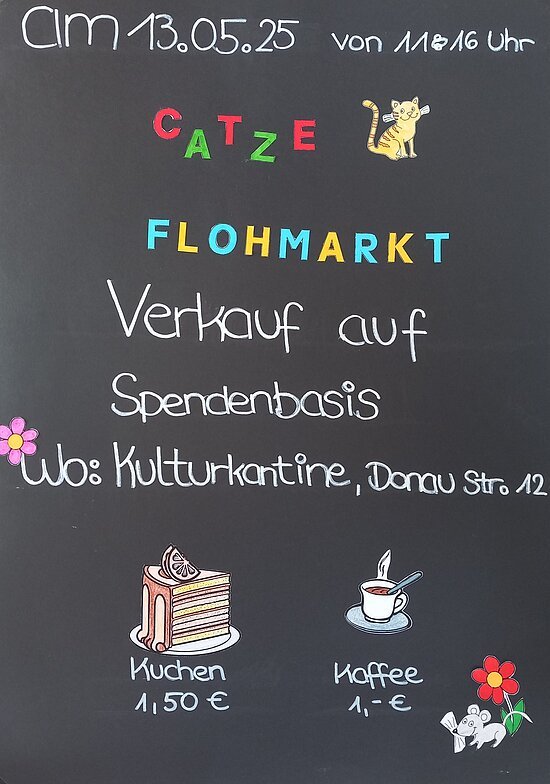 Am 13.05.25 von 11&16 Uhr
CATZE
FLOHMARKT
Verkauf auf
Spendenbasis
Wo: Kulturkantine, Donau Str. 12
Kuchen Kaffee
1,50 € 1,-€